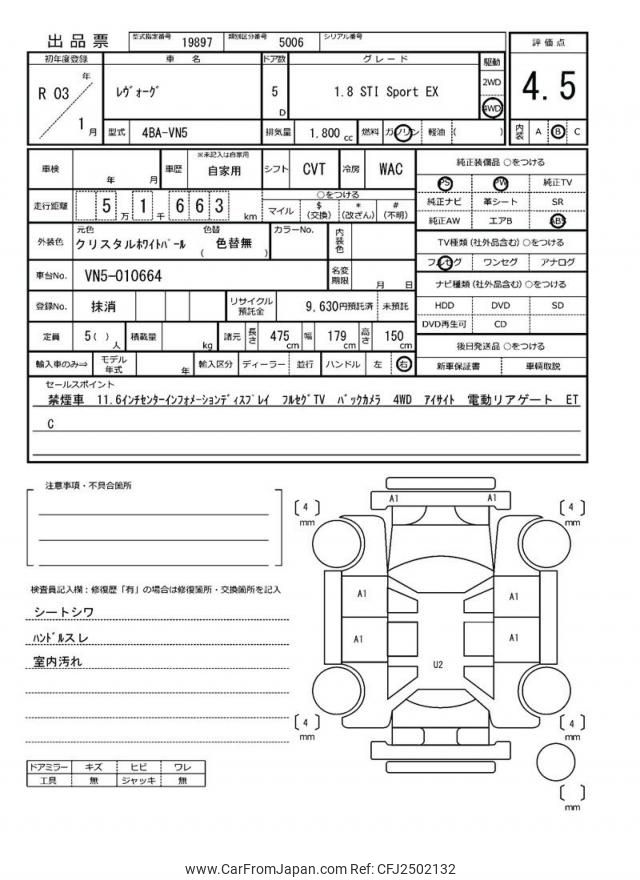 出品票 型式指定番号 19897 類別区分番号 5006 シリアル番号
初年度登録 車 名 ドア数 グレード 駆動 評価点
R 03 年 1 月 レヴォーグ 5 D 1.8 STI Sport EX 2WD 4WD 4.5
型式 4BA-VN5 排気量 1.800 cc 燃料 ガソリン 軽油 ( ) 内装 A B C
車検 年 月 車歴 ※未記入は自家用 自家用 シフト CVT 冷房 WAC
走行距離 5 万 1 千 6 6 3 km ○をつける マイル $ (交換) * (改ざん) # (不明)
外装色 元色 クリスタルホワイトパール 色替 ( 色替無 ) カラーNo. 内装色
車台No. VN5-010664 名変期限 月 日
登録No. 抹消 リサイクル預託金 9,630円預託済 未預託
定員 5( ) 人 積載量 kg 諸元 長さ 475 cm 幅 179 cm 高さ 150 cm
輸入車のみ⇒ モデル年式 年 輸入区分 ディーラー 並行 ハンドル 左 右
純正装備品 ○をつける
PS PW 純正TV
純正ナビ 革シート SR
純正AW エアB ABS
TV種類 (社外品含む) ○をつける
フルセグ ワンセグ アナログ
ナビ種類 (社外品含む) ○をつける
HDD DVD SD
DVD再生可 CD
後日発送品 ○をつける
新車保証書 車輌取説
セールスポイント
禁煙車 11.6インチセンターインフォメーションディスプレイ フルセグTV バックカメラ 4WD アイサイト 電動リアゲート ET
C
注意事項・不具合箇所
検査員記入欄：修復歴「有」の場合は修復箇所・交換箇所を記入
シートシワ
ハンドルスレ
室内汚れ
ドアミラー キズ ヒビ ワレ
工具 無 ジャッキ 無
A1 A1
[ 4 ] mm [ 4 ] mm
A1 A1
A1 A1
U2
[ 4 ] mm [ 4 ] mm
[ ] mm
www.CarFromJapan.com Ref: CFJ2502132